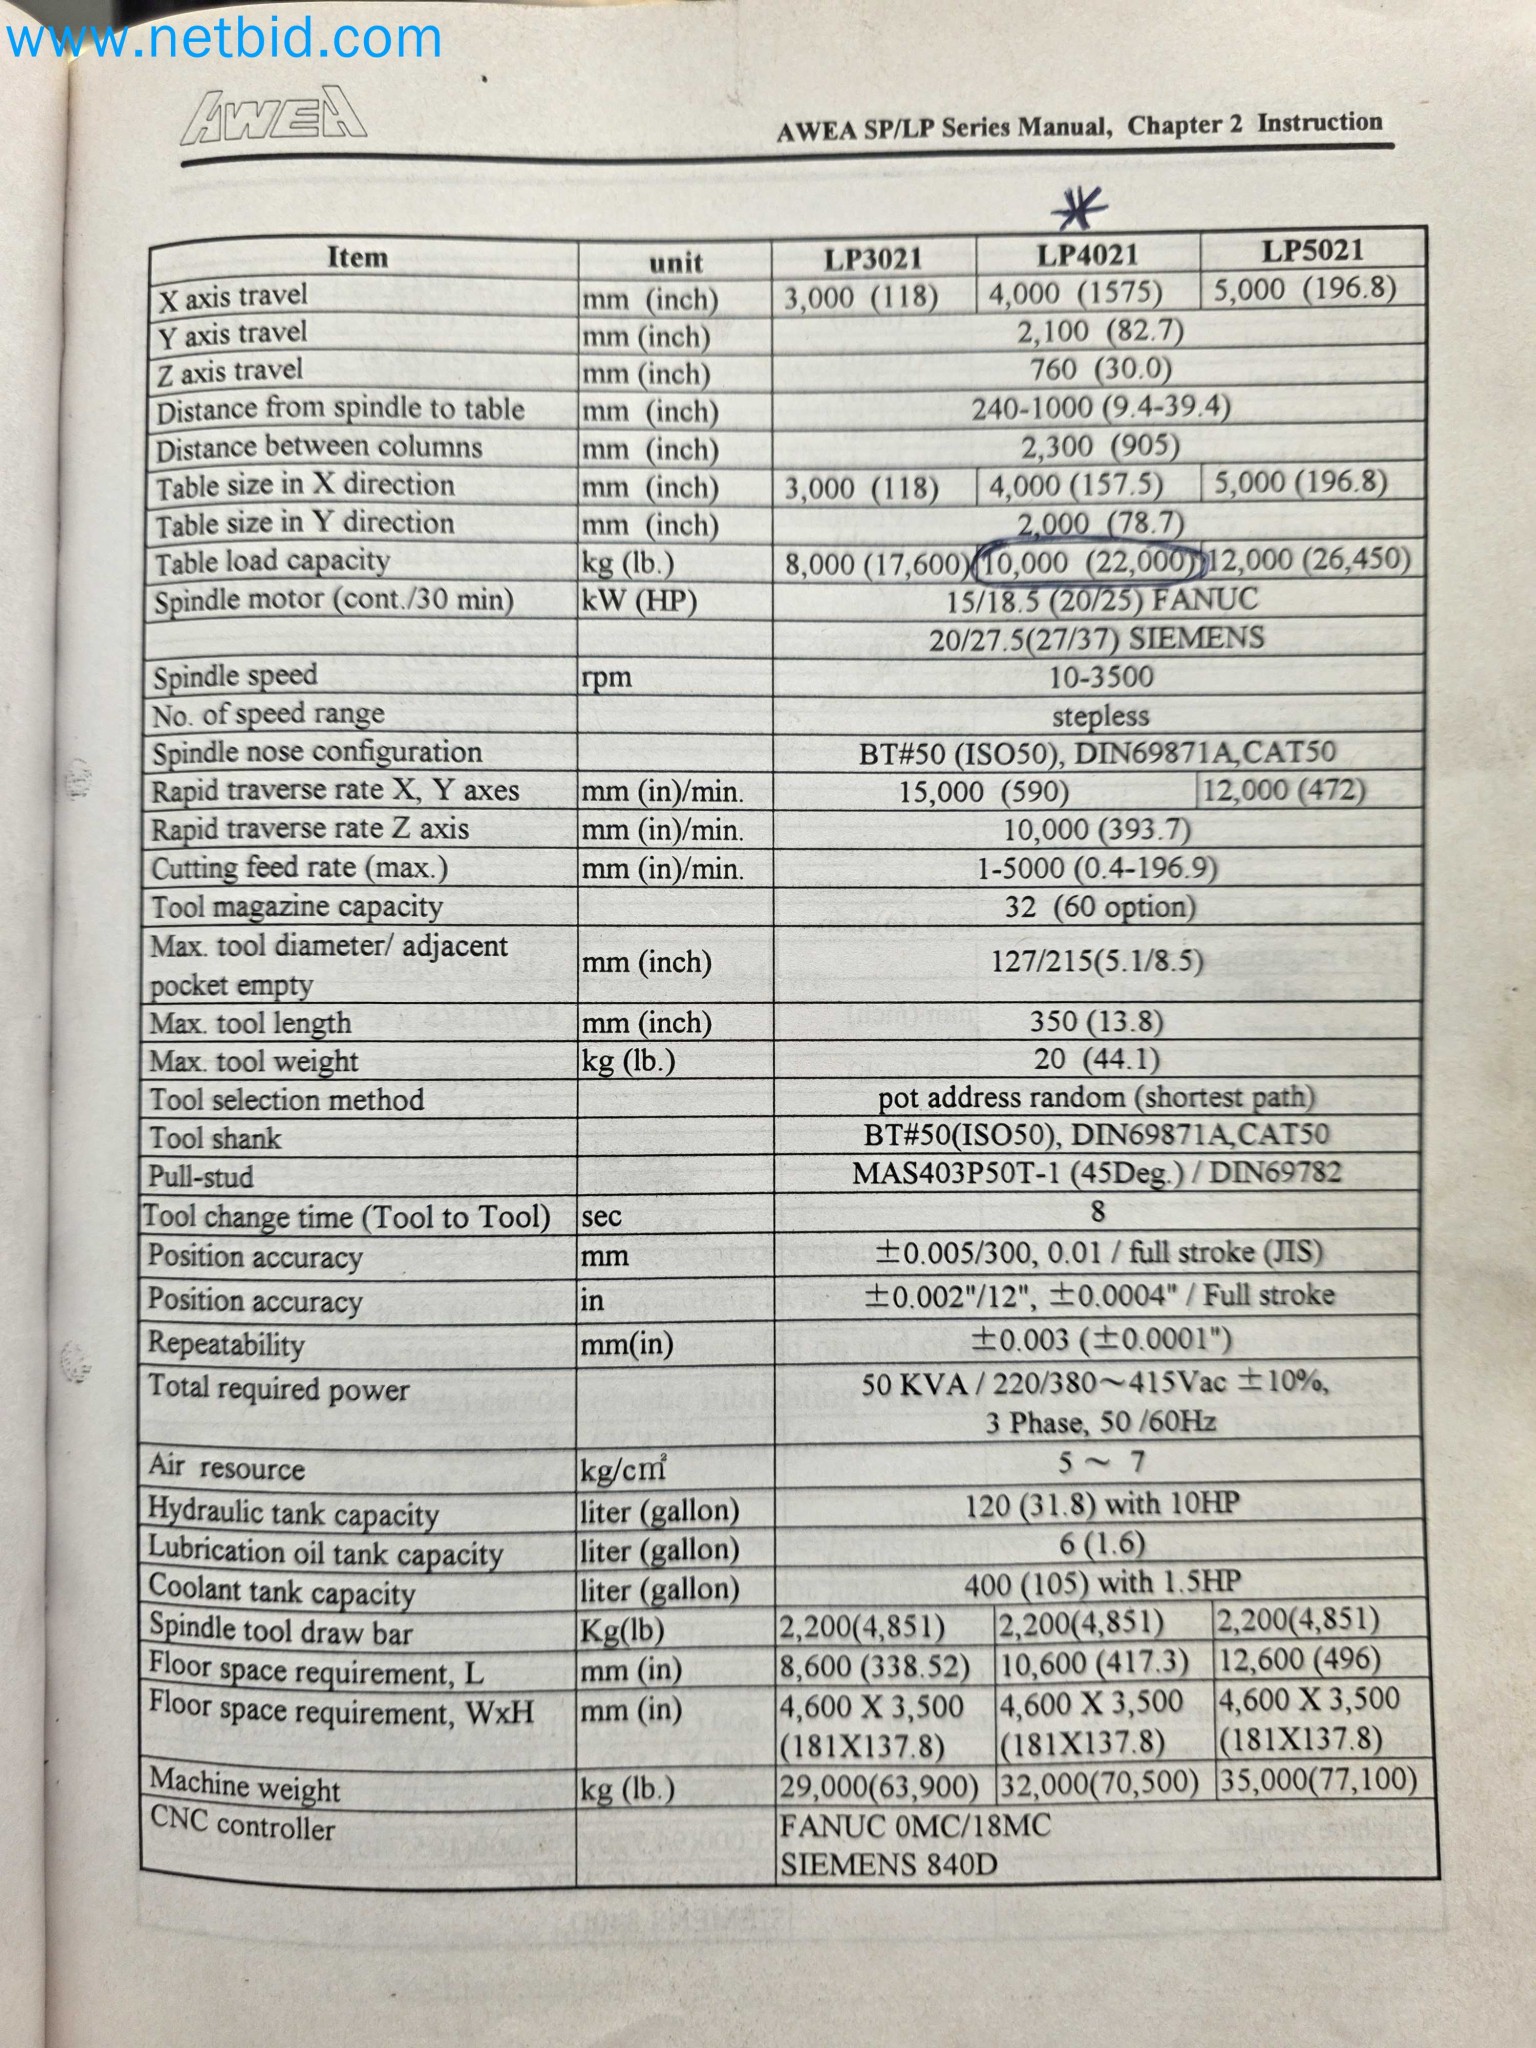 www.netbid.com
AWEA
AWEA SP/LP Series Manual, Chapter 2 Instruction
Item unit LP3021 LP4021 LP5021
X axis travel mm (inch) 3,000 (118) 4,000 (1575) 5,000 (196.8)
Y axis travel mm (inch) 2,100 (82.7)
Z axis travel mm (inch) 760 (30.0)
Distance from spindle to table mm (inch) 240-1000 (9.4-39.4)
Distance between columns mm (inch) 2,300 (905)
Table size in X direction mm (inch) 3,000 (118) 4,000 (157.5) 5,000 (196.8)
Table size in Y direction mm (inch) 2,000 (78.7)
Table load capacity kg (lb.) 8,000 (17,600) 10,000 (22,000) 12,000 (26,450)
Spindle motor (cont./30 min) kW (HP) 15/18.5 (20/25) FANUC
20/27.5(27/37) SIEMENS
Spindle speed rpm 10-3500
No. of speed range stepless
Spindle nose configuration BT#50 (ISO50), DIN69871A,CAT50
Rapid traverse rate X, Y axes mm (in)/min. 15,000 (590) 12,000 (472)
Rapid traverse rate Z axis mm (in)/min. 10,000 (393.7)
Cutting feed rate (max.) mm (in)/min. 1-5000 (0.4-196.9)
Tool magazine capacity 32 (60 option)
Max. tool diameter/ adjacent
pocket empty mm (inch) 127/215(5.1/8.5)
Max. tool length mm (inch) 350 (13.8)
Max. tool weight kg (lb.) 20 (44.1)
Tool selection method pot address random (shortest path)
Tool shank BT#50(ISO50), DIN69871A,CAT50
Pull-stud MAS403P50T-1 (45Deg.) / DIN69782
Tool change time (Tool to Tool) sec 8
Position accuracy mm ±0.005/300, 0.01 / full stroke (JIS)
Position accuracy in ±0.002"/12", ±0.0004" / Full stroke
Repeatability mm(in) ±0.003 (±0.0001")
Total required power 50 KVA / 220/380～415Vac ±10%,
3 Phase, 50 /60Hz
Air resource kg/cm² 5 ～ 7
Hydraulic tank capacity liter (gallon) 120 (31.8) with 10HP
Lubrication oil tank capacity liter (gallon) 6 (1.6)
Coolant tank capacity liter (gallon) 400 (105) with 1.5HP
Spindle tool draw bar Kg(lb) 2,200(4,851) 2,200(4,851) 2,200(4,851)
Floor space requirement, L mm (in) 8,600 (338.52) 10,600 (417.3) 12,600 (496)
Floor space requirement, WxH mm (in) 4,600 X 3,500 4,600 X 3,500 4,600 X 3,500
(181X137.8) (181X137.8) (181X137.8)
Machine weight kg (lb.) 29,000(63,900) 32,000(70,500) 35,000(77,100)
CNC controller FANUC 0MC/18MC
SIEMENS 840D